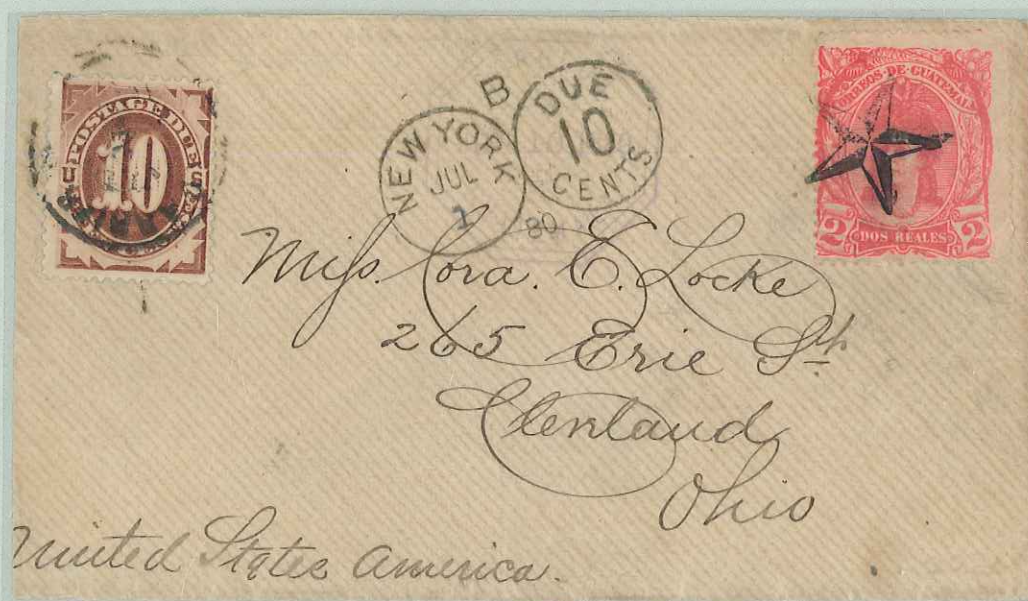 POSTAGE DUE
10
U S
B
NEW YORK
JUL
1
80
DUE
10
CENTS
CORREOS·DE·GUATEMALA
2 DOS REALES 2
Miss. Cora. E. Locke
265 Erie St.
Clevland
Ohio
United States America.